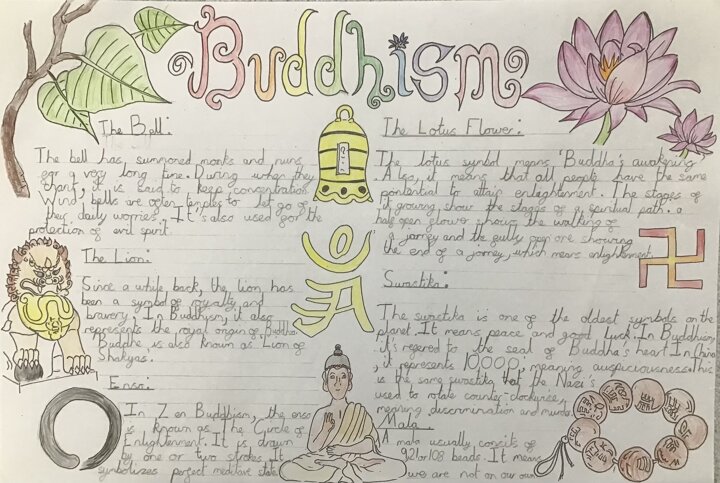 Buddhism
The Bell:
The bell has summoned monks and nuns
gor a very long time. During when they
chant, it is said to keep concentration
Wind bells are often temples to let go of
they daily worries. It's also used gor the
protection of evil spirit.
The Lion:
Since a while back, the lion has
been a symbol of royalty and
bravery. In Buddhism, it also
represents the royal origin of Buddha
Buddha is also known as 'Lion of
Shakyas.
Enso:
In Zen Buddhism, the enso
is known as The Circle of
Enlightenment. It is drawn
by one or two strokes. It
symbolizes perfect meditative state
The Lotus Flower:
The lotus symbol means 'Buddha's awakening
Also, it means that all people have the same
pontential to attain enlightenment. The stages of
it growing show the stages of a spiritual path. a
half open flower shows the walking of
a jorney and the fully open one showing
the end of a jorney, which means enlightenment.
Swastika:
The swastika is one of the oldest symbols on the
planet. It means peace and good luck. In Buddhism,
it's regered to the seal of Buddha's heart. In China
, it represents 10,000, meaning auspiciousness. This
is the same swastika that the Nazi's
used to rotate counter-clockwise,
meaning discrimination and murder.
Mala
A mala usually consits of
92 or 108 beads. It means
we are not on our own